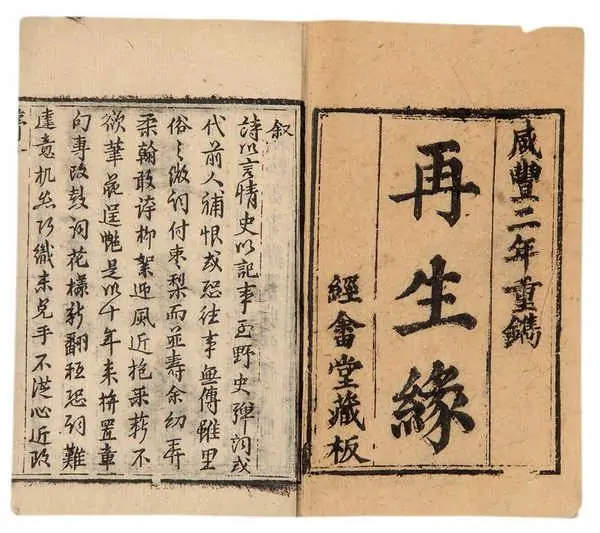 咸豐二年重鐫
再生緣
經畬堂藏板
叙
詩以言情史以記事至野史彈詞或
代前人補恨或恐往事無傳雖里
俗之微詞付棗梨而並壽余幼弄
柔翰敢誇柳絮迎風近抱采薪不
欲華逞艷是以十年来拚置章
句專改鼓詞花樣新翻秪恐詞難
達意机丝巧織未免手不從心近改